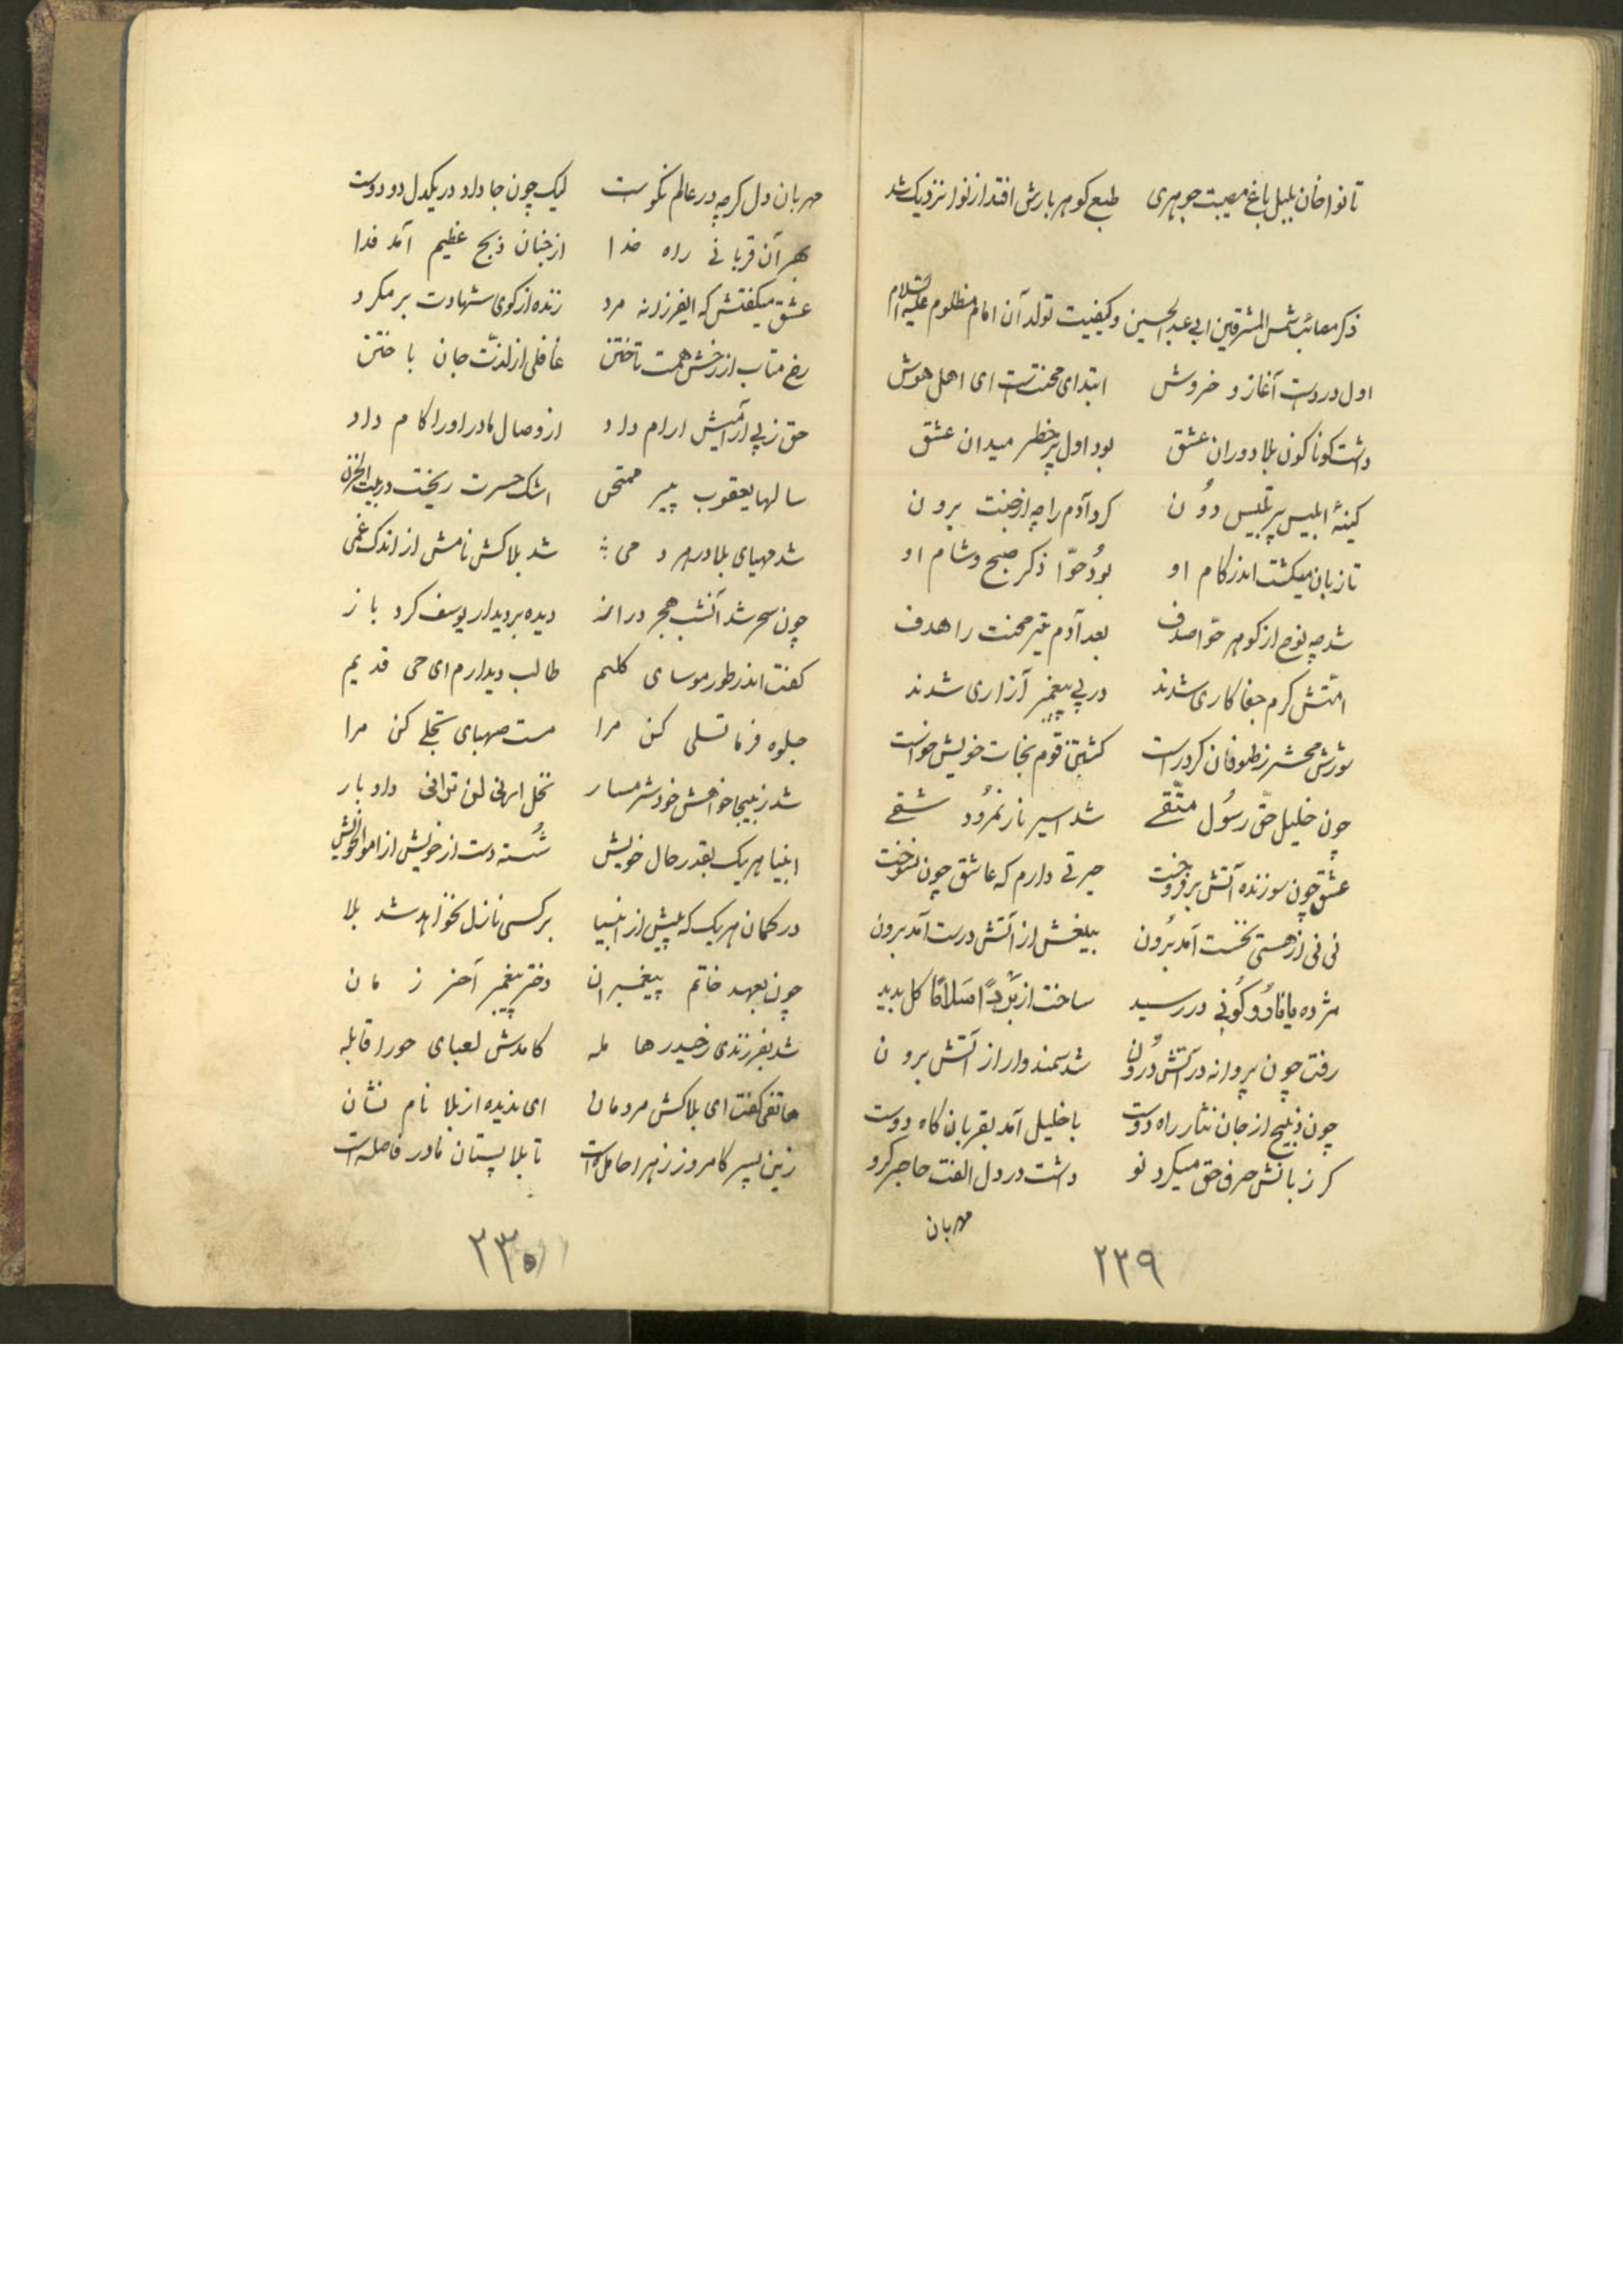 تا نواخان بلبل باغ مصیبت جوهری طبع کوهر بارش افتد از نوا نزدیک شد
ذکر مصائب شمس المشرقین ابی عبد الحسین و کیفیت تولد آن امام مظلوم علیه السلام
اول دردست آغاز و خروش ابتدای محنتست ای اهل هوش
داشت کوناکون بلا دوران عشق بود اول پر خطر میدان عشق
کینهٔ ابلیس پر تلبیس دون کرد آدم را چه از جنت برون
تا زبان میکشت اندر کام او بود حوّا ذکر صبح و شام او
شد چه نوح از کوهر حوّا صدف بعد آدم تیر محنت را هدف
امّتش کرم جفا کاری شدند در پی پیغمبر آزاری شدند
شورش محشر ز طوفان کرد راست کشتی قوم نجات خویش خواست
چون خلیل حقّ رسُول متّقے شد اسیر نار نمرُود شقے
عشق چون سوزنده آتش بر فروخت حیرتے دارم که عاشق چون نسوخت
نی نی از هستی نخست آمد برُون بیغش از آتش درست آمد برون
مژده یا نارُ کُونِی در رسید ساخت از بَرْداً سَلامًا کل بدید
رفت چون پروانه در آتش درُون شد سمندوار از آتش برون
چون ذبیح از جان نثار راه دوست با خلیل آمد بقربان کاه دوست
کر زبانش حرف حق میکرد نو داشت در دل الفت حاجر کرو
مهربان
۲۲۹
مهربان دل کرچه در عالم نکوست لیک چون جا دارد در یکدل دو دوست
بهر آن قربانے راه خدا از جنان ذبح عظیم آمد فدا
عشق میکفتش که ایفرزانه مرد زنده از کوی شهادت بر مکرد
رخ متاب از رخش همت تاختن غافلی از لذّت جان باختن
حق ز پی آرامیش ارام داد از وصال مادر اورا کام داد
سالها یعقوب پیر ممتحن اشک حسرت ریخت در بیت الحزن
شد مهیای بلا در هر دمی شد بلاکش نامش از اندک غمی
چون سحر شد آنشب هجر دراز دیده بر دیدار یوسف کرد باز
کفت اندر طور موسای کلیم طالب دیدارم ای حی قدیم
جلوه فرما تسلی کن مرا مست صهبای تجلے کن مرا
شد ز بیجا خواهش خود شرمسار نخل ارنی لن ترانی داد بار
انبیا هر یک بقدر حال خویش شُسته دست از خویش از اموال خویش
در کمان هر یک که پیش از انبیا بر کسی نازل نخواهد شد بلا
چون بعهد خاتم پیغمبران دختر پیغمبر آخر زمان
شد بفرزندی ز حیدر حامله کامدش لعبای حورا قابله
هاتفی کفت ای بلاکش مردمان ای ندیده از بلا نام نشان
زین پسر کامروز زهرا حامل است تا بلا پستان مادر فاصله است
۲۳۰